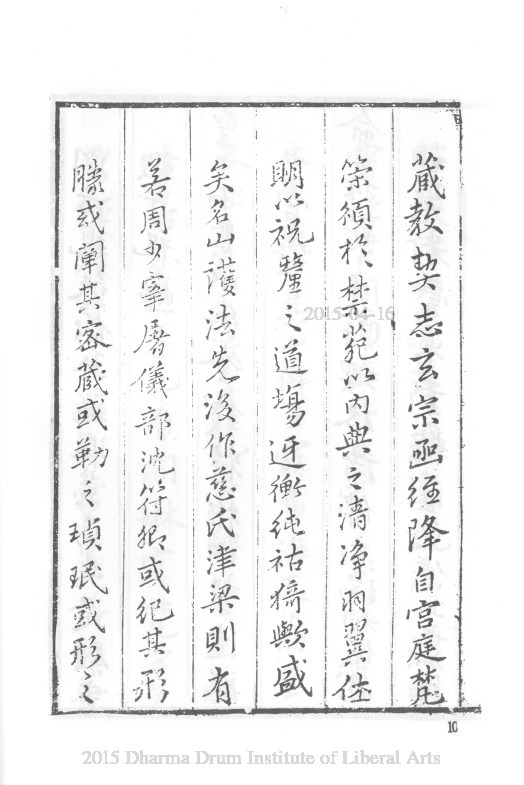 藏教契志玄宗函經降自宮庭梵
策頒於禁苑以內典之清淨羽翼休
明以祝釐之道場迓衡純祜猗歟盛
矣名山護法先後作慈氏津梁則有
若周少宰屠儀部沈符卿或紀其形
勝或闡其密藏或勒之瑱珉或形之
2015-04-16
10
2015 Dharma Drum Institute of Liberal Arts